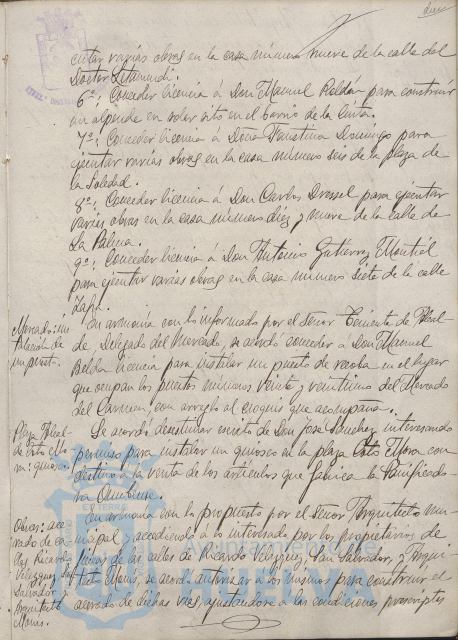 cutar varias obras en la casa número nueve de la calle del
Doctor Letamendi.
6º: Conceder licencia á Don Manuel Roldán para construir
un alpende en solar sito en el barrio de la Cinta.
7º: Conceder licencia á Doña Faustina Domingo para
ejecutar varias obras en la casa número seis de la plaza de
la Soledad.
8º: Conceder licencia á Don Carlos Dressel para ejecutar
varias obras en la casa número diez y nueve de la calle de
La Palma.
9º: Conceder licencia á Don Antonio Gutierrez Montiel
para ejecutar varias obras en la casa número siete de la calle
Zafra.
Mercado: ins
talación de
un puesto.
En armonía con lo informado por el Señor Teniente de Alcal-
de Delegado del Mercado, se acordó conceder a Don Manuel
licencia para instalar un puesto de recoba en el lugar
que ocupan los puestos números veinte y veintiuno del Mercado
del Carmen, con arreglo al croquis que acompaña.
Plaza Alcal-
de Coto Mo-
ra: quiosco.
Se acordó desestimar escrito de Don José Sanchez interesando
permiso para instalar un quiosco en la plaza Coto Mora con
destino a la venta de los artículos que fabrica la Panificado-
ra Onubense.
Obras: ace-
rado de ca-
lles Ricardo
Velazquez, San
Salvador y
Arquitecto
Monis.
En armonía con lo propuesto por el Señor Arquitecto mu-
nicipal y accediendo á lo interesado por los propietarios de
fincas de las calles de Ricardo Velazquez, San Salvador, y Arqui-
tecto Monis, se acordó autorizar a los mismos para construir el
acerado de dichas vías, ajustandose a las condiciones prescriptas
HUELVA